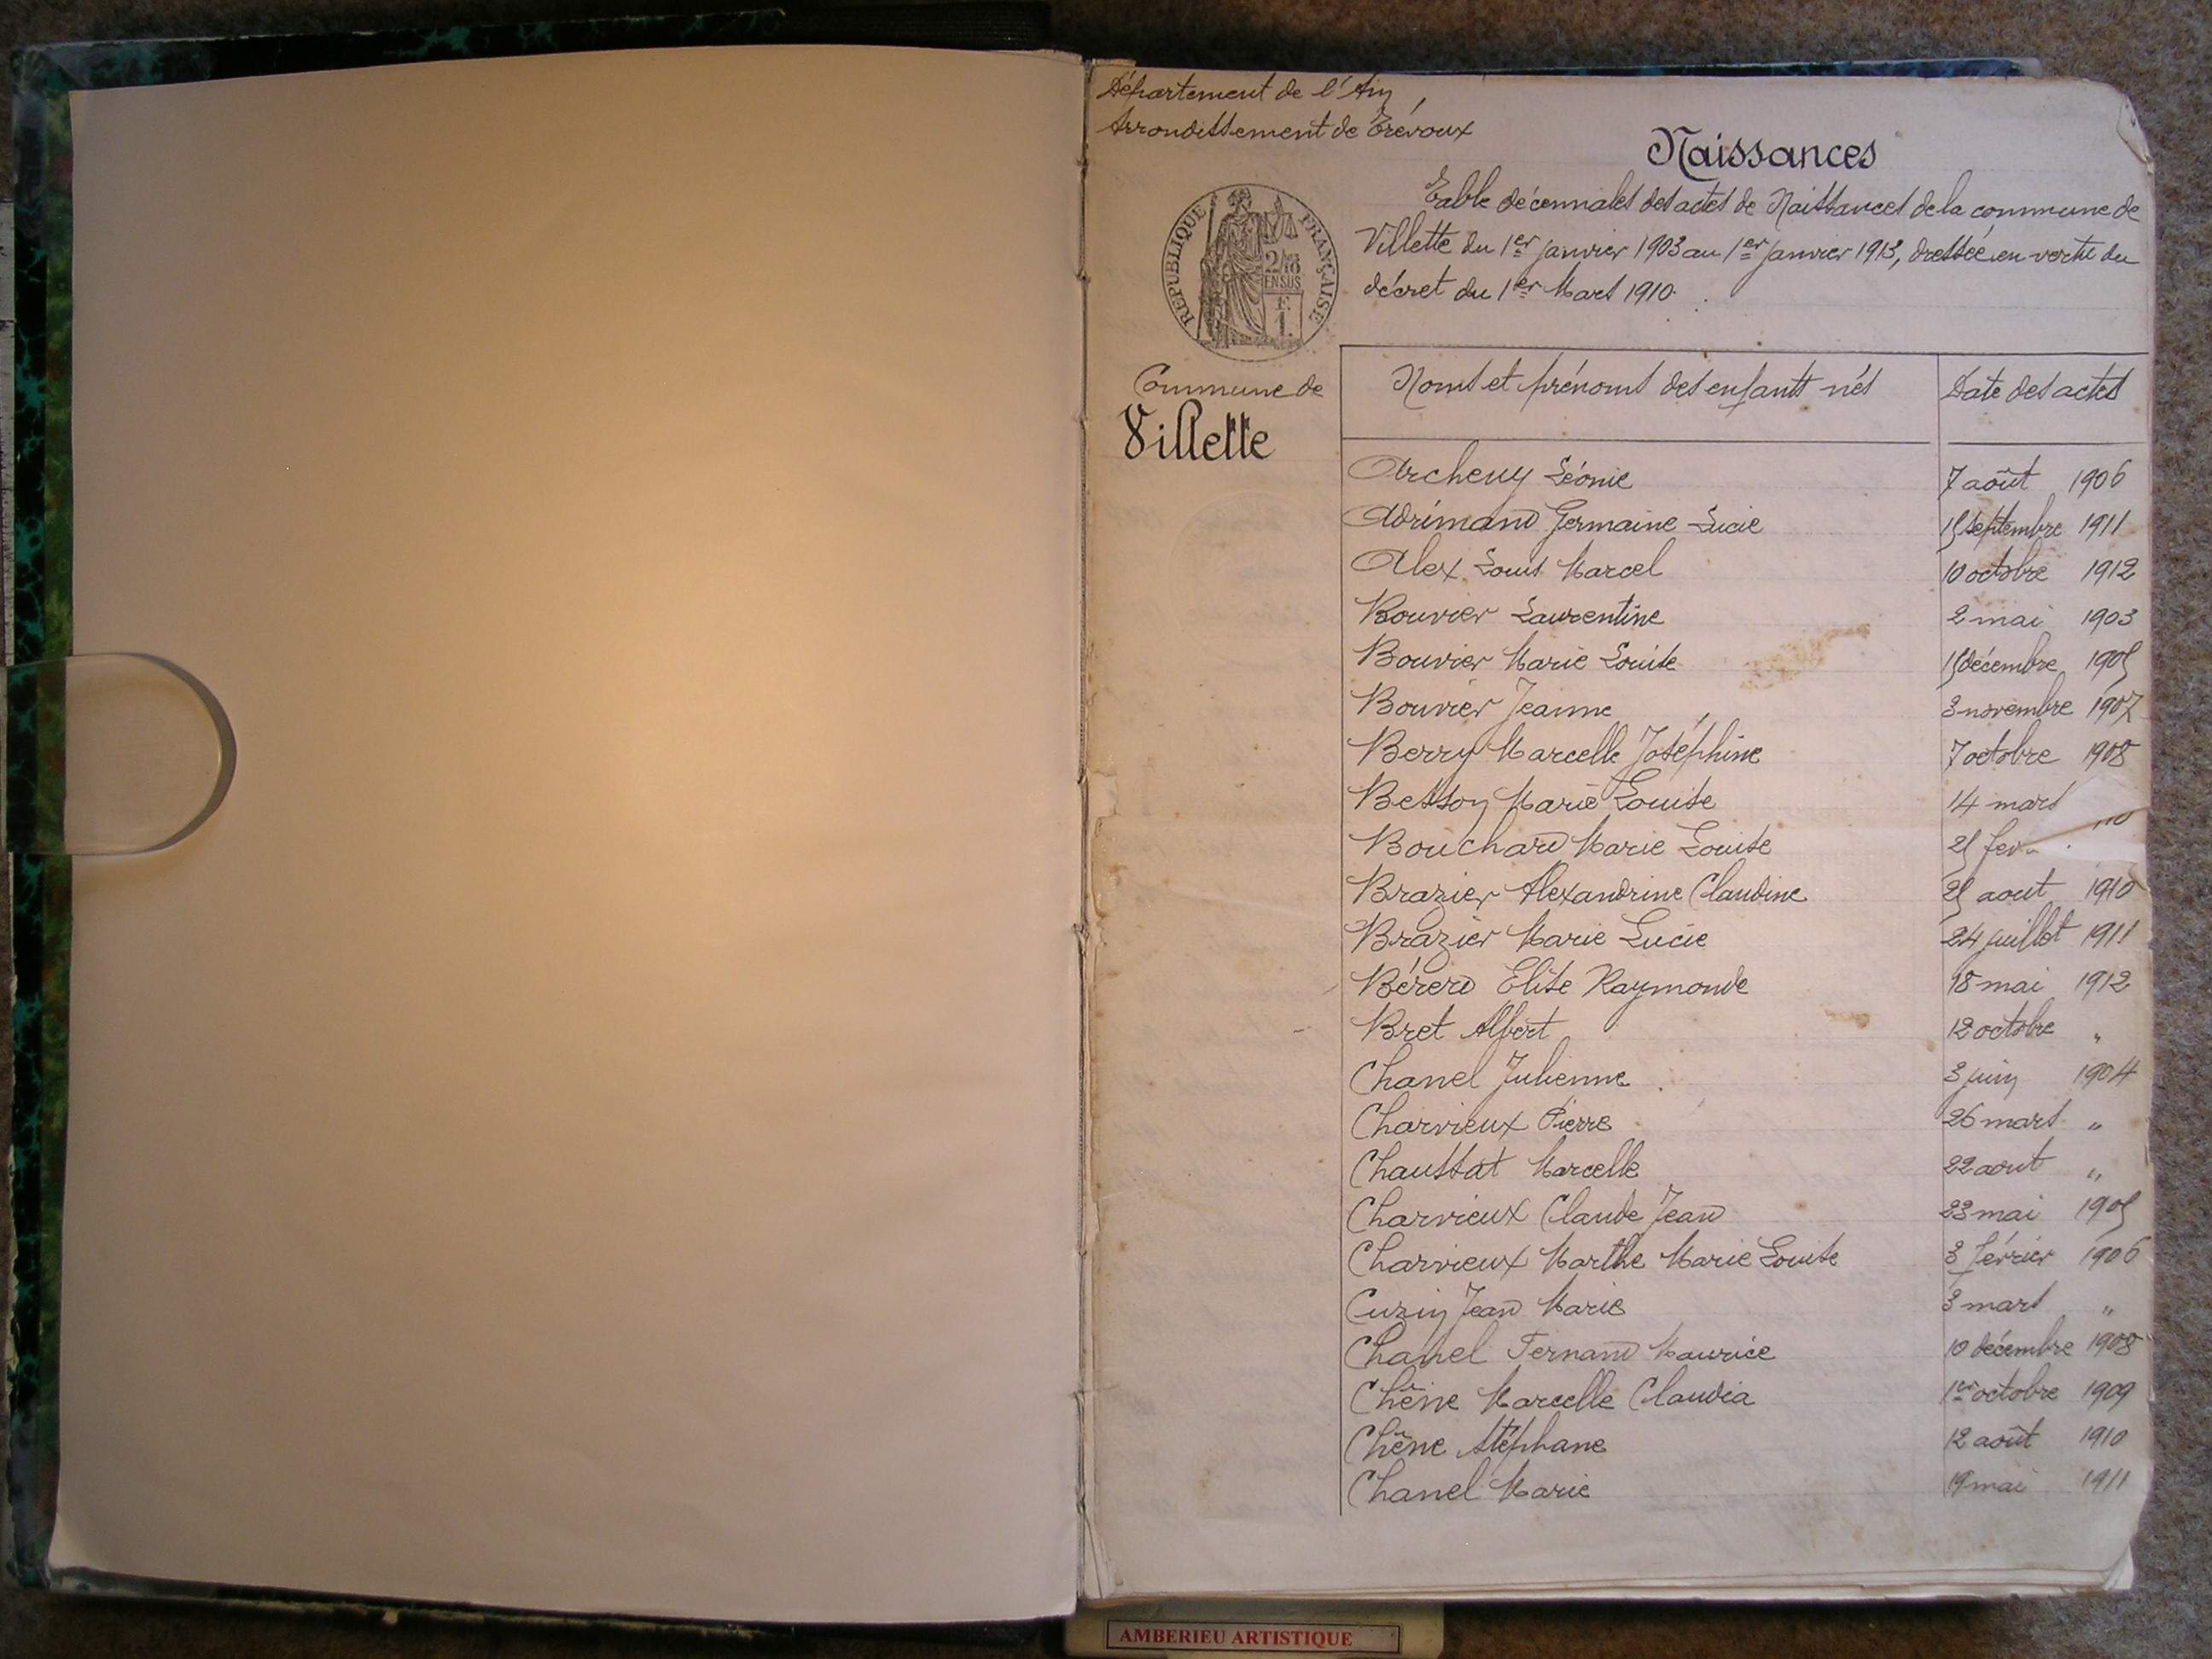 Département de l'Ain
Arrondissement de Trévoux
Naissances
Table décennales des actes de Naissances de la commune de
Villette du 1er janvier 1903 au 1er janvier 1913, dressée en vertu du
décret du 1er Mars 1910.
RÉPUBLIQUE FRANÇAISE
2/10
EN SUS
F.
1.
Commune de
Villette
Noms et prénoms des enfants nés
Date des actes
Archeny Léonie 7 août 1906
Adrimand Germaine Lucie 15 septembre 1911
Alex Louis Marcel 10 octobre 1912
Bouvier Laurentine 2 mai 1903
Bouvier Marie Louise 15 décembre 1905
Bouvier Jeanne 3 novembre 1907
Berry Marcelle Joséphine 7 octobre 1908
Besson Marie Louise 14 mars
Bouchard Marie Louise 25
Brazier Alexandrine Claudine 25 aout 1910
Brazier Marie Lucie 24 juillet 1911
Bérerd Elise Raymonde 18 mai 1912
Bret Albert 12 octobre "
Chanel Julienne 3 juin 1904
Charvieux Pierre 26 mars "
Chaussat Marcelle 22 aout "
Charvieux Claude Jean 23 mai 1905
Charvieux Marthe Marie Louise 3 février 1906
Cuzin Jean Marie 3 mars "
Chanel Fernand Maurice 10 décembre 1908
Chêne Marcelle Claudia 1er octobre 1909
Chêne Stéphane 12 août 1910
Chanel Marie 19 mai 1911
AMBERIEU ARTISTIQUE